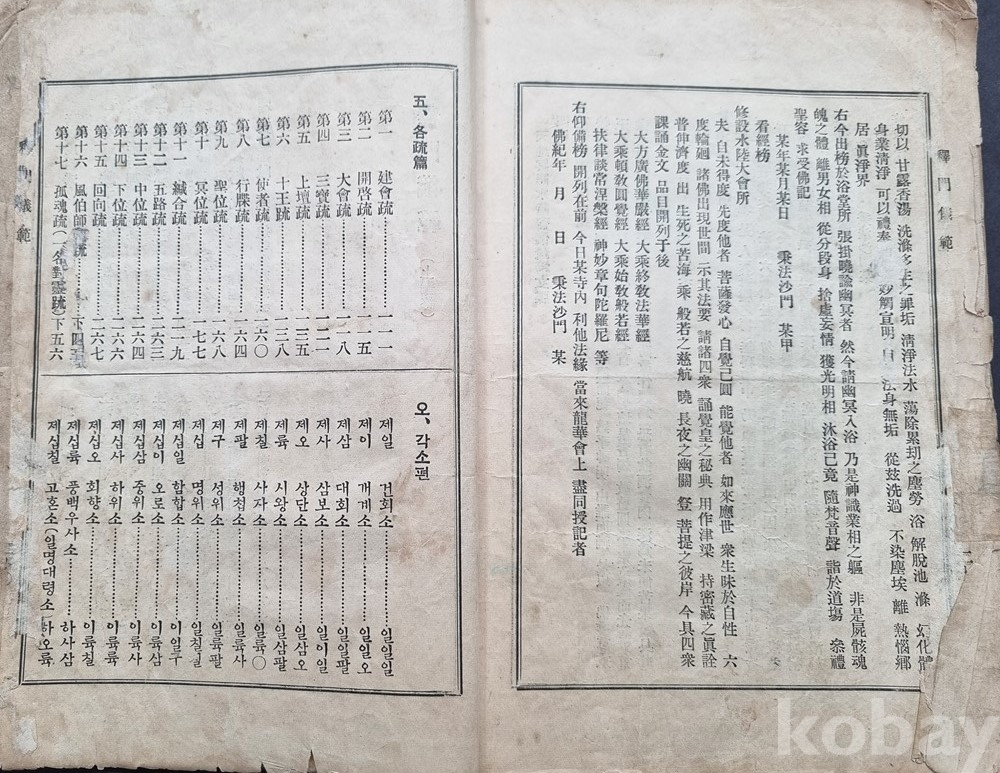 釋門儀範
切以 甘露香湯 洗滌多生之罪垢 淸淨法水 蕩除累刧之塵勞 浴 解脫池 滌 幻化體
身業淸淨 可以禮奉 妙觸宣明 法身無垢 從玆洗過 不染塵埃 離 熱惱鄕
居 眞淨界
右今出榜於浴堂所 張掛曉諭幽冥者 然今請幽冥入浴 乃是神識業相之軀 非是屍骸魂
魄之體 離男女相 從分段身 捨虛妄情 獲光明相 沐浴己竟 隨梵音聲 詣於道場 叅禮
聖容 求受佛記
某年某月某日 秉法沙門 某甲
看經榜
修設水陸大會所
夫 自未得度 先度他者 菩薩發心 自覺己圓 能覺他者 如來應世 衆生昧於自性 六
度輪廻 諸佛出現世間 示其法要 請諸四衆 誦覺皇之秘典 用作津梁 持密藏之眞詮
普仰濟度 出 生死之苦海 乘 般若之慈航 曉 長夜之幽關 登 菩提之彼岸 今具四衆
課誦金文 品目開列于後
大方廣佛華嚴經 大乘終敎法華經
大乘頓敎圓覺經 大乘始敎般若經
扶律談常涅槃經 神妙章句陀羅尼 等
右仰備榜 開列在前 今日某寺內 利他法緣 當來龍華會上 盡同授記者
佛紀年 月 日 秉法沙門 某
五、各疏篇
第一 建會疏…一一一
第二 開啓疏…一一五
第三 大會疏…一一八
第四 三寶疏…一二一
第五 上壇疏…一三五
第六 十王疏…一三八
第七 使者疏…一六〇
第八 行牒疏…一六四
第九 聖位疏…一六八
第十 冥位疏…一七七
第十一 緘合疏…一一九
第十二 五路疏…二六三
第十三 中位疏…二六四
第十四 下位疏…二六六
第十五 回向疏…二六七
第十六 風伯雨師疏…下四三
第十七 孤魂疏(一名對靈疏)下五六
儀範
오、각소편
제일 건회소…일일일
제이 개계소…일일오
제삼 대회소…일일팔
제사 삼보소…일이일
제오 상단소…일삼오
제륙 시왕소…일삼팔
제칠 사자소…일륙〇
제팔 행첩소…일륙사
제구 성위소…일륙팔
제십 명위소…일칠칠
제십일 함합소…이일구
제십이 오로소…이륙삼
제십삼 중위소…이륙사
제십사 하위소…이륙륙
제십오 회향소…이륙칠
제십륙 풍백우사소…하사삼
제십칠 고혼소(일명대령소)하오륙
kobay